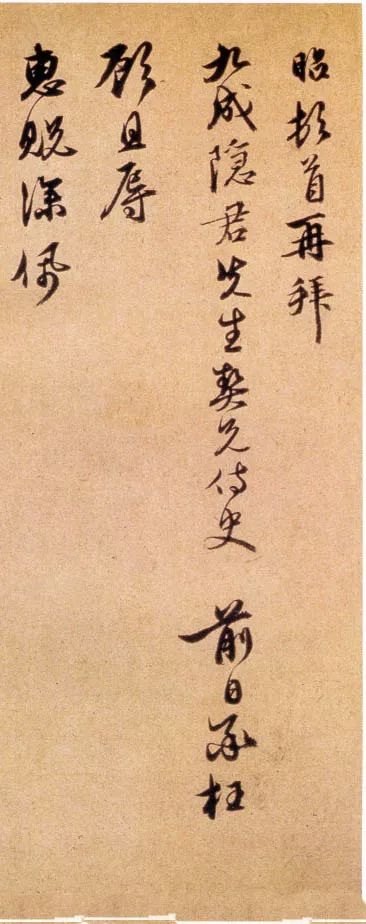 昭頓首再拜
九成隱君先生契兄侍史 前日承枉
顧且辱
惠貺深佩